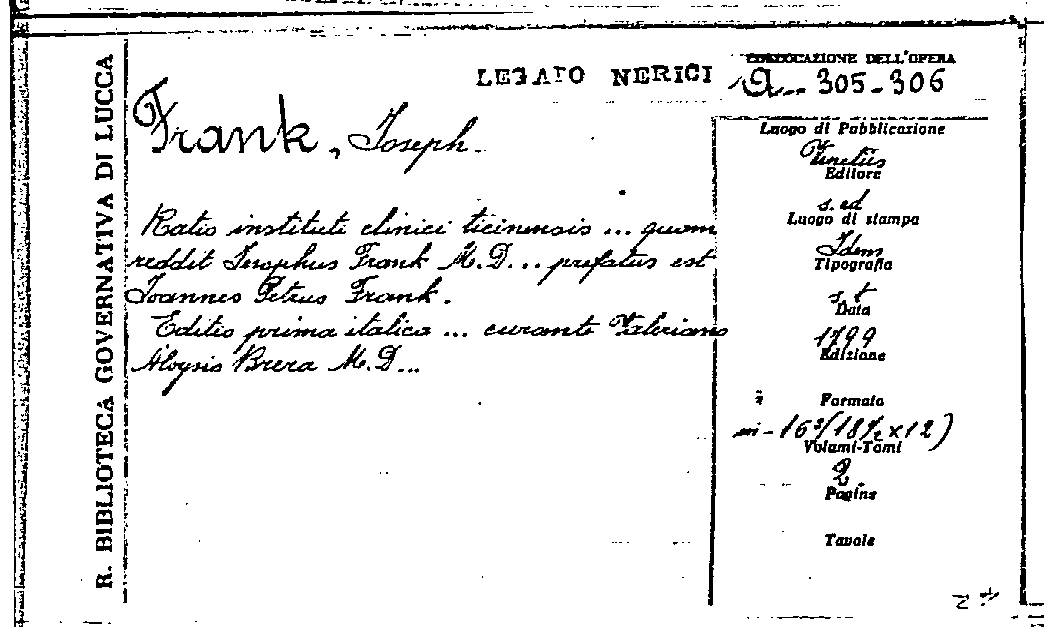 R. BIBLIOTECA GOVERNATIVA DI LUCCA
LEGATO NERICI
COLLOCAZIONE DELL'OPERA
a. 305-306
Frank, Joseph.
Ratio instituti clinici ticinensis ... quam
reddit Iosephus Frank M.D... prefatus est
Ioannes Petrus Frank.
Editio prima italica ... curante Valeriano
Aloysio Brera M.D...
Luogo di Pubblicazione
Venetiis
Editore
s. ed
Luogo di stampa
Idem
Tipografia
s. t
Data
1799
Edizione
Formato
in-16º/18½ x 12)
Volumi-Tomi
2
Pagine
Tavole